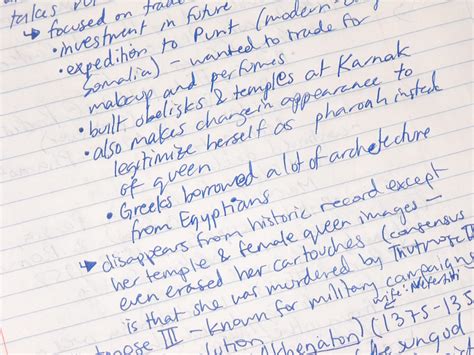 takes
→ focused on trade
• investment in future
• expedition to Punt (modern-
Somalia) - wanted to trade for
makeup and perfumes
• built obelisks & temples at Karnak
• also makes change in appearance to
legitimize herself as pharoah instead
of queen
• Greeks borrowed a lot of archetecture
from Egyptians
→ disappears from historic record except
her temple & female queen images -
even erased her cartouches (consensus
is that she was murdered by Thutmose II
mose III - known for military campaigns
wife: Nefertiti
lution (Akhenaton) (1375-135
the sungod